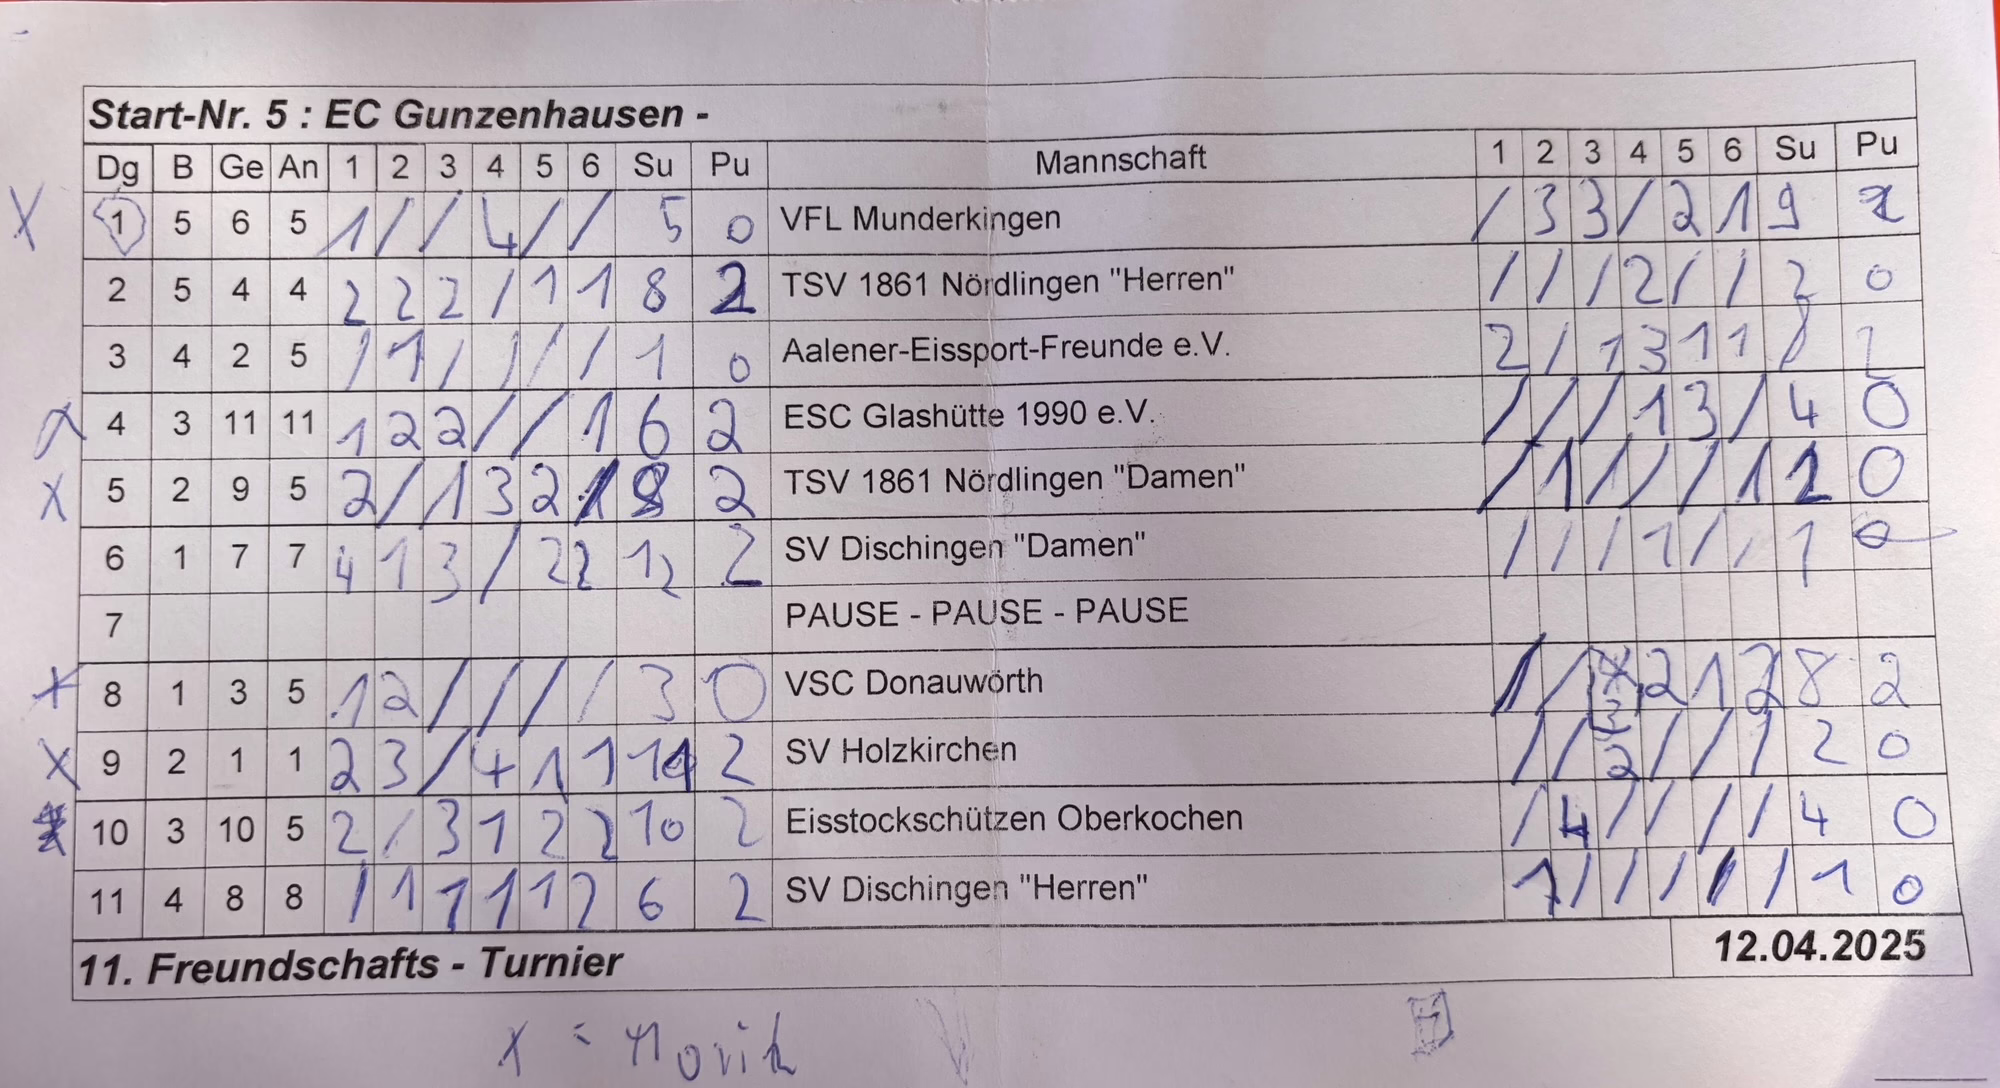 Start-Nr. 5 : EC Gunzenhausen -
Dg B Ge An 1 2 3 4 5 6 Su Pu Mannschaft 1 2 3 4 5 6 Su Pu
X 1 5 6 5 1 / / 4 / / 5 0 VFL Munderkingen / 3 3 / 2 1 9 2
2 5 4 4 2 2 2 / 1 1 8 2 TSV 1861 Nördlingen "Herren" / / / 2 / / 2 0
3 4 2 5 / 1 / / / / 1 0 Aalener-Eissport-Freunde e.V. 2 / 1 3 1 1 8 2
4 3 11 11 1 2 2 / / 1 6 2 ESC Glashütte 1990 e.V. / / / 1 3 / 4 0
X 5 2 9 5 2 / 1 3 2 1 8 2 TSV 1861 Nördlingen "Damen" / 1 / / / 1 2 0
6 1 7 7 4 1 3 / 2 2 12 2 SV Dischingen "Damen" / / / 1 / / 1 0
7 PAUSE - PAUSE - PAUSE
X 8 1 3 5 1 2 / / / / 3 0 VSC Donauwörth / / 3 2 1 2 8 2
X 9 2 1 1 2 3 / 4 1 1 11 2 SV Holzkirchen / / 2 / / / 2 0
10 3 10 5 2 / 3 1 2 2 10 2 Eisstockschützen Oberkochen / 4 / / / / 4 0
11 4 8 8 / 1 1 1 1 2 6 2 SV Dischingen "Herren" 1 / / / / / 1 0
11. Freundschafts - Turnier 12.04.2025
x = Moritz